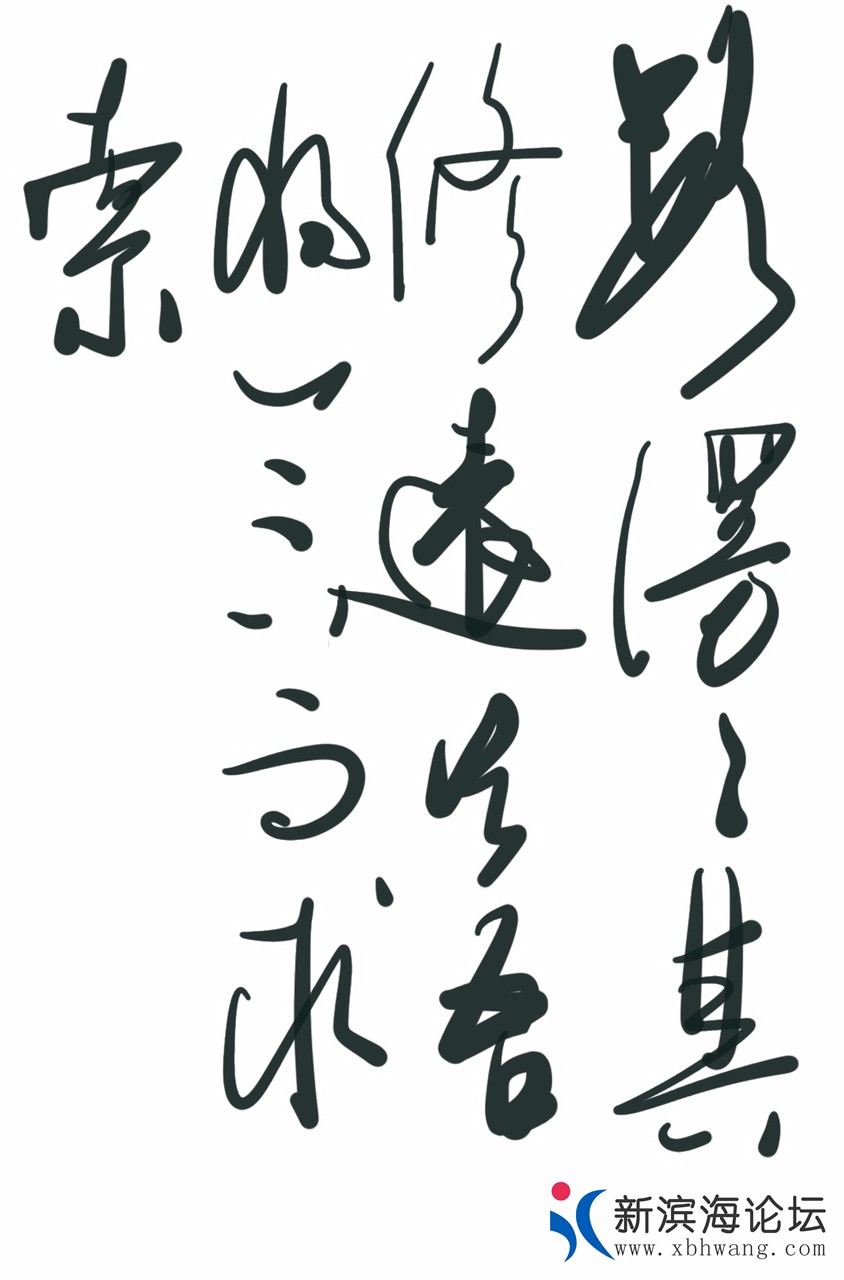 路漫漫其
修遠兮吾
将上下而求
索
新滨海论坛
www.xbhwang.com